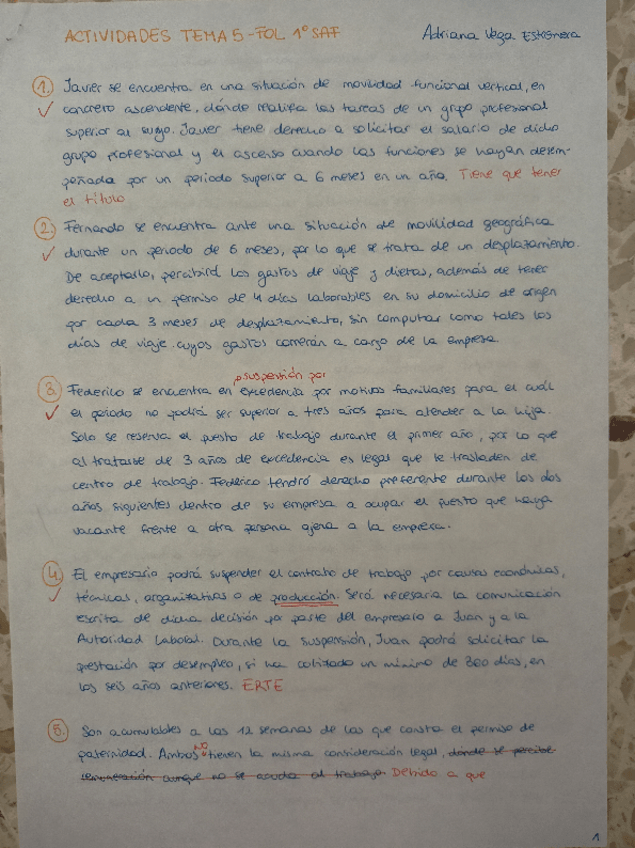 ACTIVIDADES TEMA 5 - FOL 1º SAF
Adriana Vega
1. Javier se encuentra en una situación de movilidad funcional vertical, en
concreto ascendente, dónde realiza las tareas de un grupo profesional
superior al suyo. Javier tiene derecho a solicitar el salario de dicho
grupo profesional y el ascenso cuando las funciones se hayan desem-
peñada por un periodo superior a 6 meses en un año. Tiene que tener
el título
2. Fernando se encuentra ante una situación de movilidad geográfica
durante un periodo de 6 meses, por lo que se trata de un desplazamiento.
De aceptarlo, percibirá los gastos de viaje y dietas, además de tener
derecho a un permiso de 4 días laborables en su domicilio de origen
por cada 3 meses de desplazamiento, sin computar como tales los
días de viaje, cuyos gastos correrán a cargo de la empresa.
suspensión por
3. Federico se encuentra en excedencia por motivos familiares para el cuál
el periodo no podrá ser superior a tres años para atender a la hija.
Solo se reserva el puesto de trabajo durante el primer año, por lo que
al tratarse de 3 años de excedencia es legal que le trasladen de
centro de trabajo. Federico tendrá derecho preferente durante los dos
años siguientes dentro de su empresa a ocupar el puesto que haya
vacante frente a otra persona ajena a la empresa.
4. El empresario podrá suspender el contrato de trabajo por causas económicas,
técnicas, organizativas o de producción. Será necesaria la comunicación
escrita de dicha decisión por parte del empresario a Juan y a la
Autoridad Laboral. Durante la suspensión, Juan podrá solicitar la
prestación por desempleo, si ha cotizado un mínimo de 360 días, en
los seis años anteriores. ERTE
5. Son acumulables a las 12 semanas de las que consta el permiso de
paternidad. Ambos NO tienen la misma consideración legal, donde se percibe
remuneración aunque no se acuda al trabajo. Debido a que
1